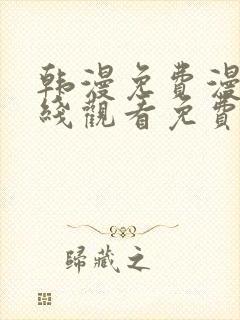 韩漫免費漫
綫觀看免費
歸藏之